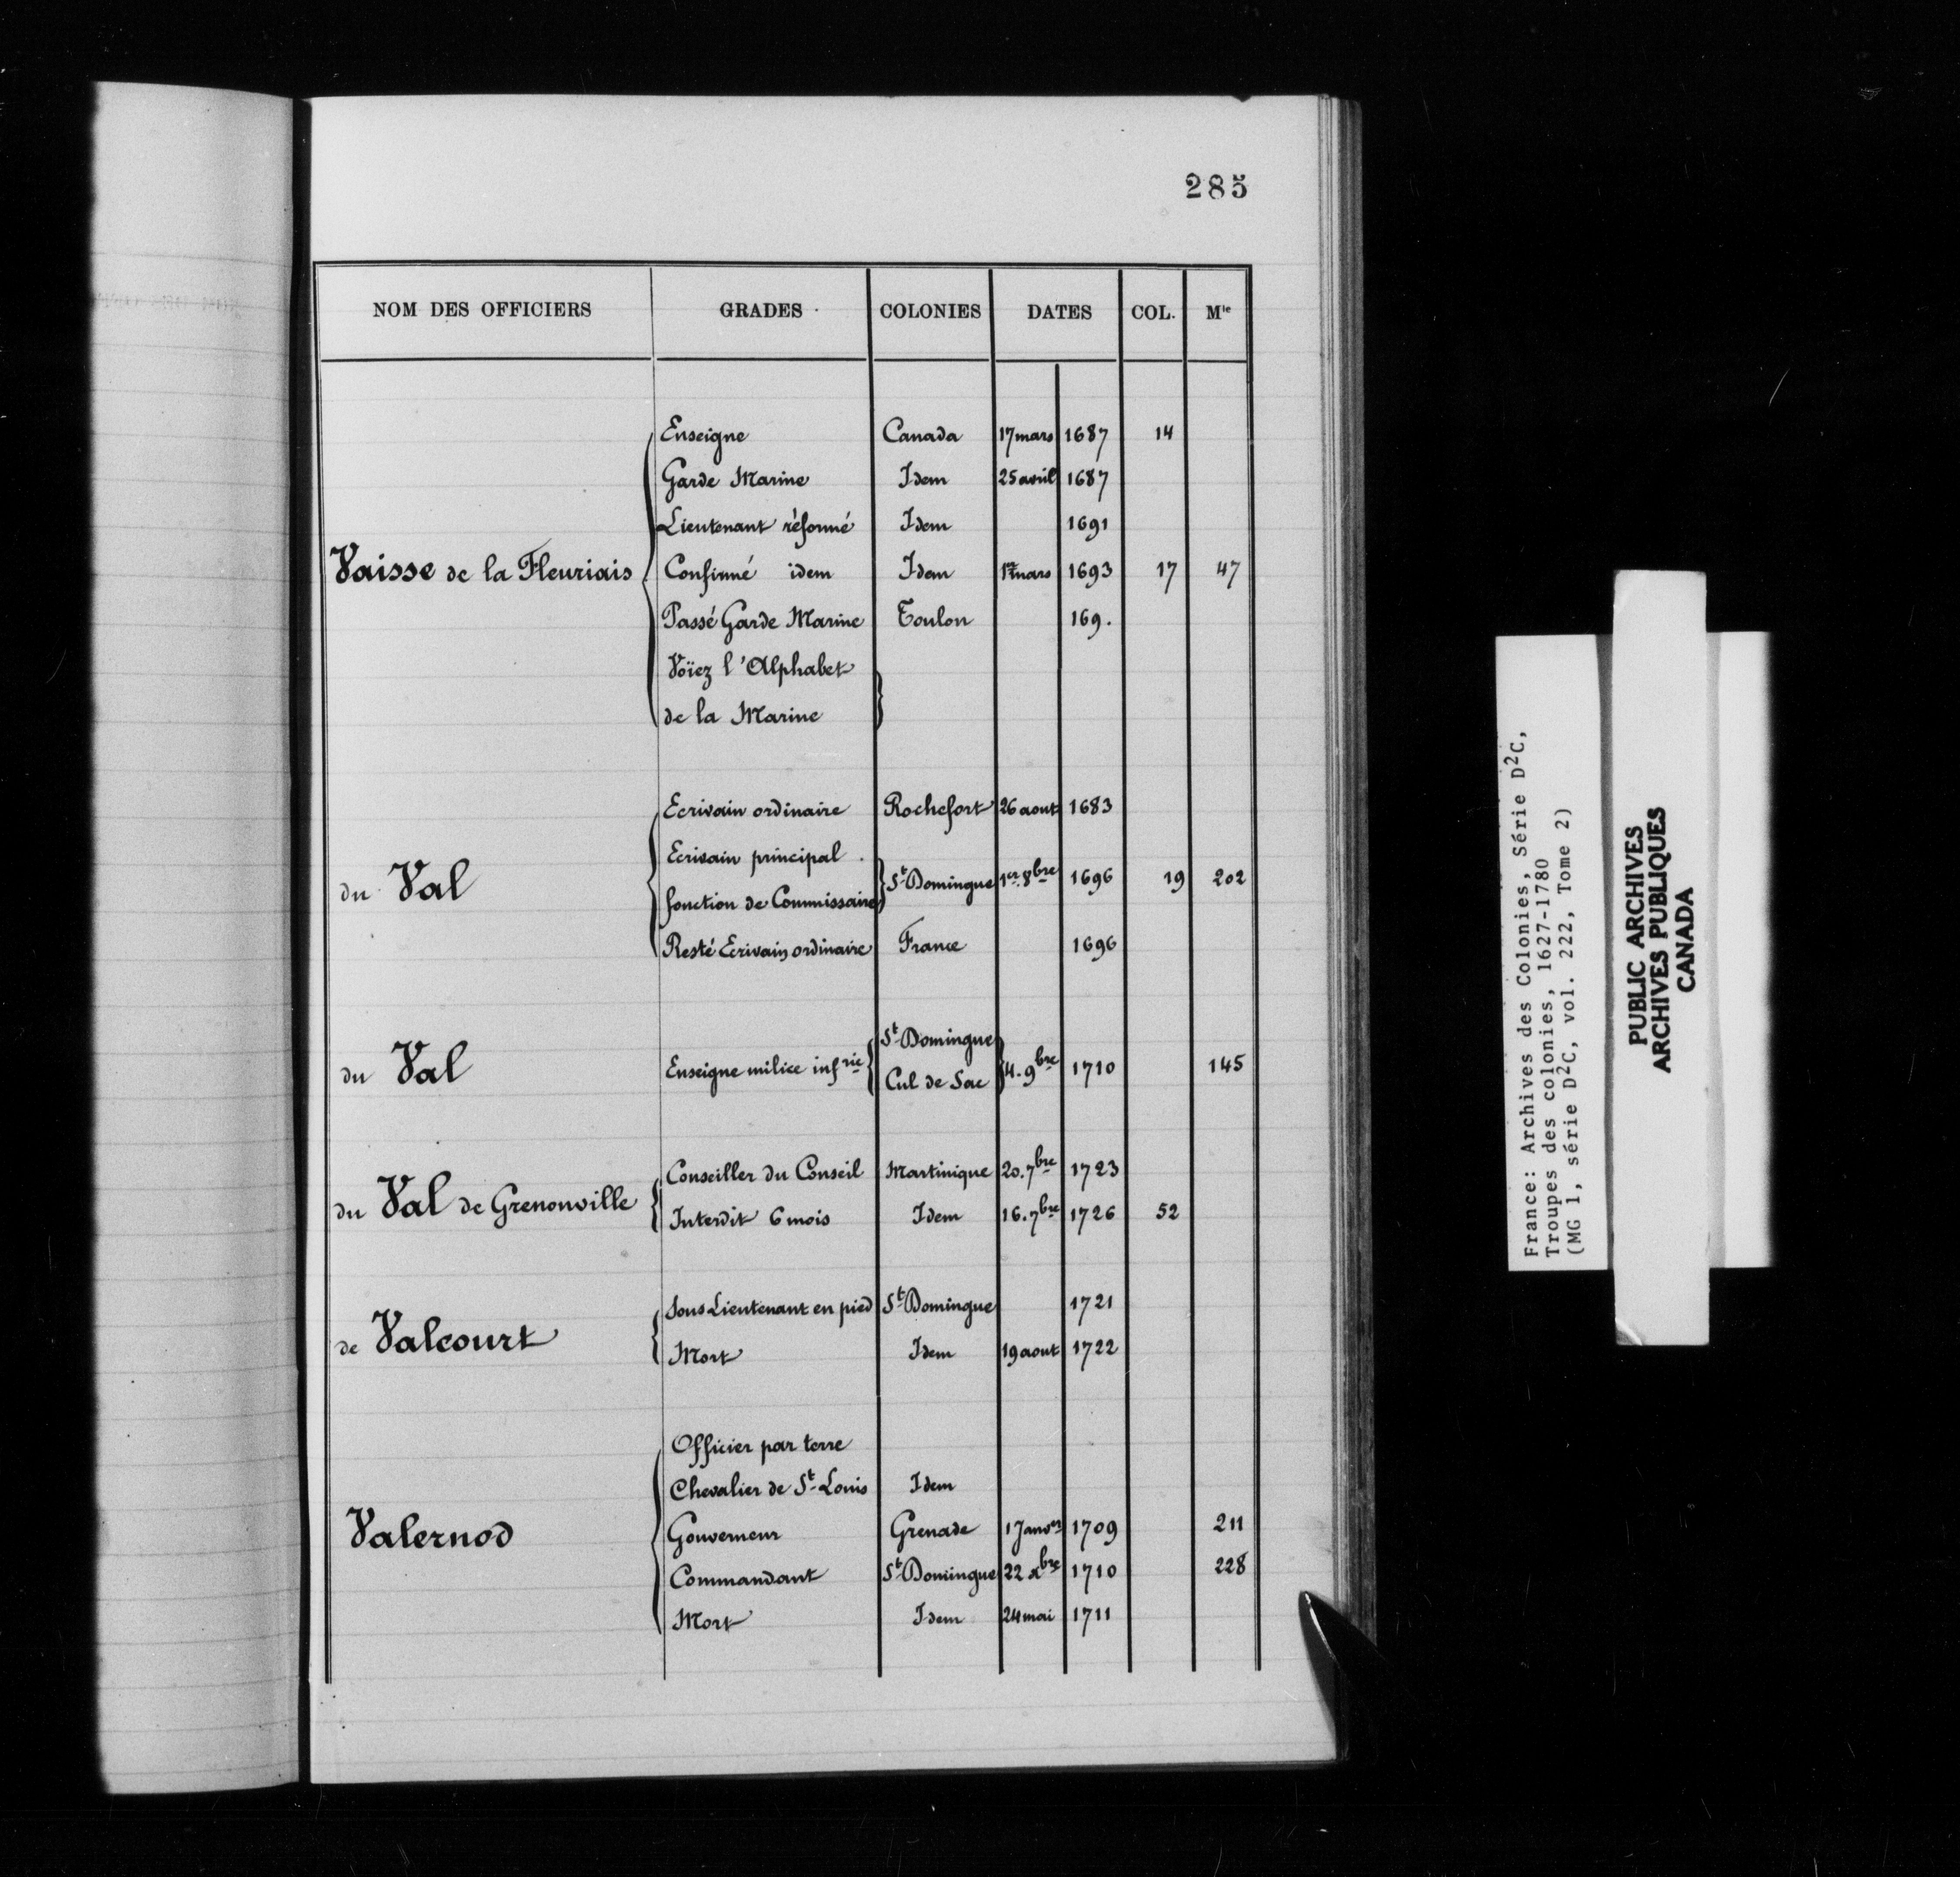 285
NOM DES OFFICIERS GRADES COLONIES DATES COL. Mle
Enseigne Canada 17 mars 1687 14
Garde Marine Idem 25 avril 1687
Lieutenant réformé Idem 1691
Vaisse de la Fleuriais Confirmé idem Idem mars 1693 17 47
Passé Garde Marine Toulon 169.
Voïez l'Alphabet
de la Marine
Ecrivain ordinaire Rochefort 26 aout 1683
Ecrivain principal
du Val St Domingue 1er 8bre 1696 19 202
fonction de Commissaire
Resté Ecrivain ordinaire France 1696
St Domingue
du Val Enseigne milice infrie 4. 9bre 1710 145
Cul de Sac
Conseiller du Conseil Martinique 20. 7bre 1723
du Val de Grenonville Interdit 6 mois Idem 16. 7bre 1726 52
Sous Lieutenant en pied St Domingue 1721
de Valcourt Mort Idem 19 aout 1722
Officier par terre
Chevalier de St Louis Idem
Valernod Gouverneur Grenade 1 Janver 1709 211
Commandant St Domingue 22 xbre 1710 228
Mort Idem 24 mai 1711
France: Archives des Colonies, Série D2C,
Troupes des colonies, 1627-1780
(MG 1, série D2C, vol. 222, Tome 2)
PUBLIC ARCHIVES
ARCHIVES PUBLIQUES
CANADA